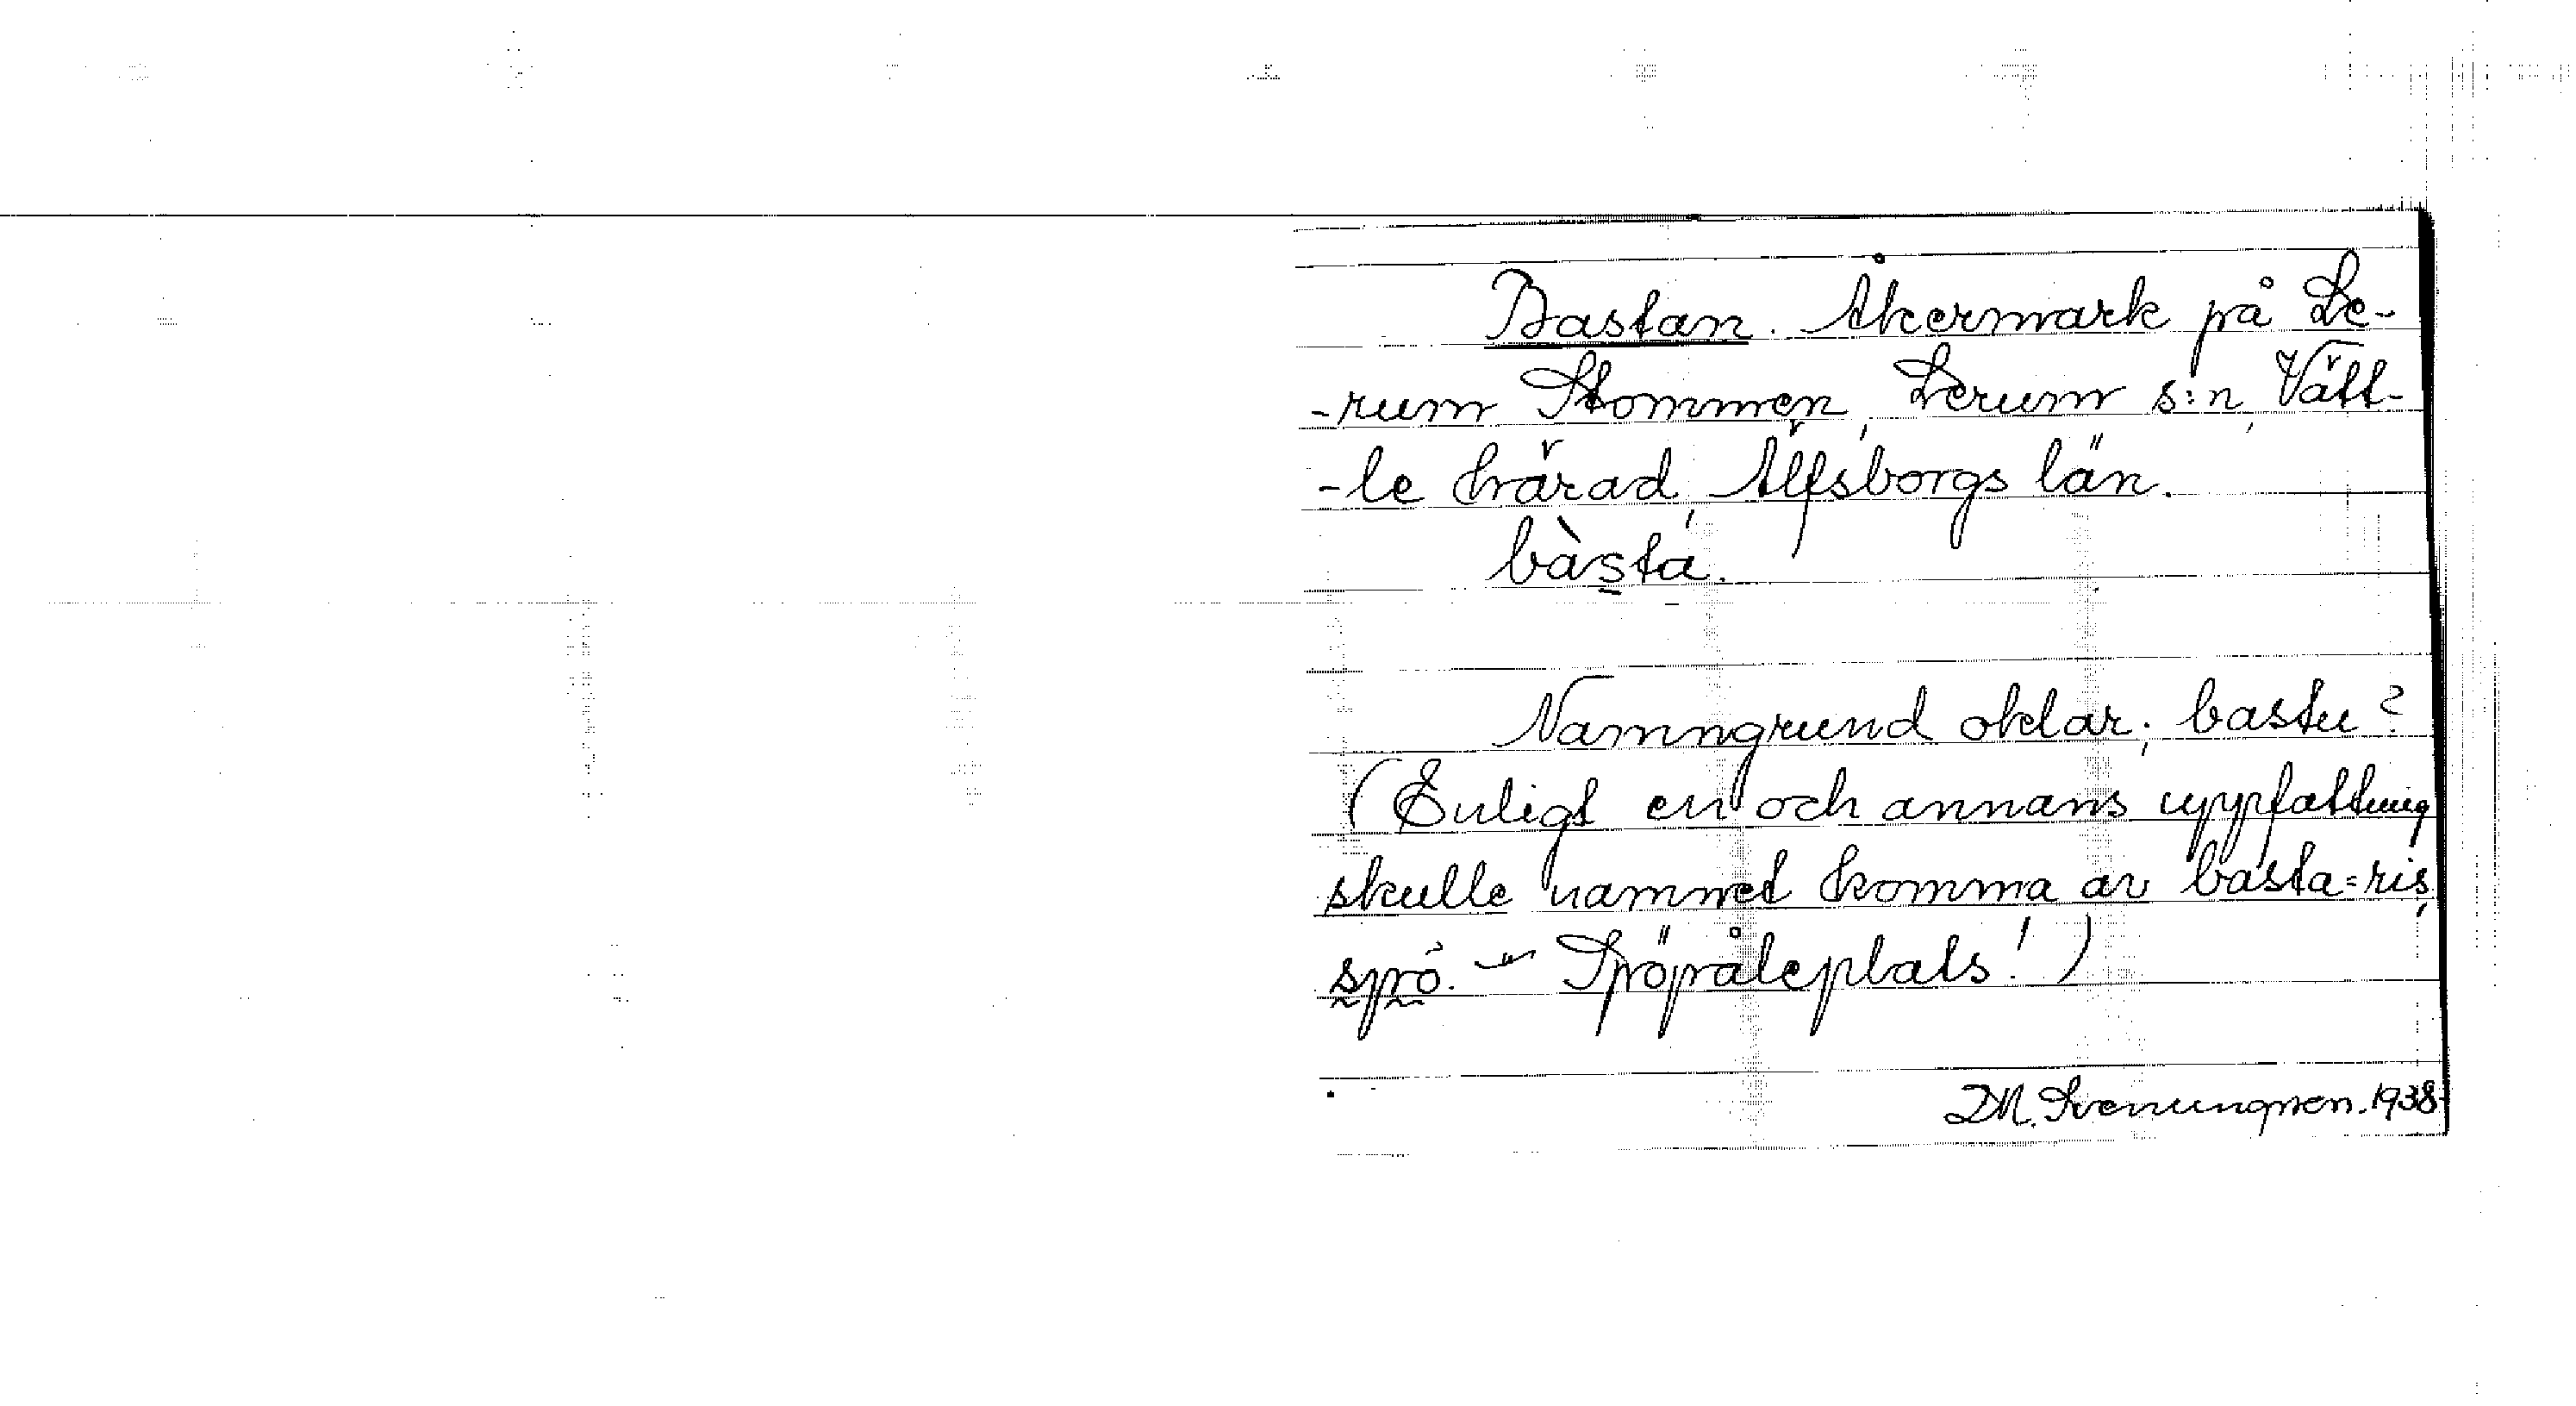 Bastan. Åkermark på Le-
-rum Stommen, Lerum s:n, Vätt-
-le härad, Älfsborgs län.
bàsta.
Namngrund oklar; bastu?
(Enligt en och annans uppfattning
skulle namnet komma av basta=ris,
spö. – Spöpåleplats!)
D.M. Svenungsson. 1938